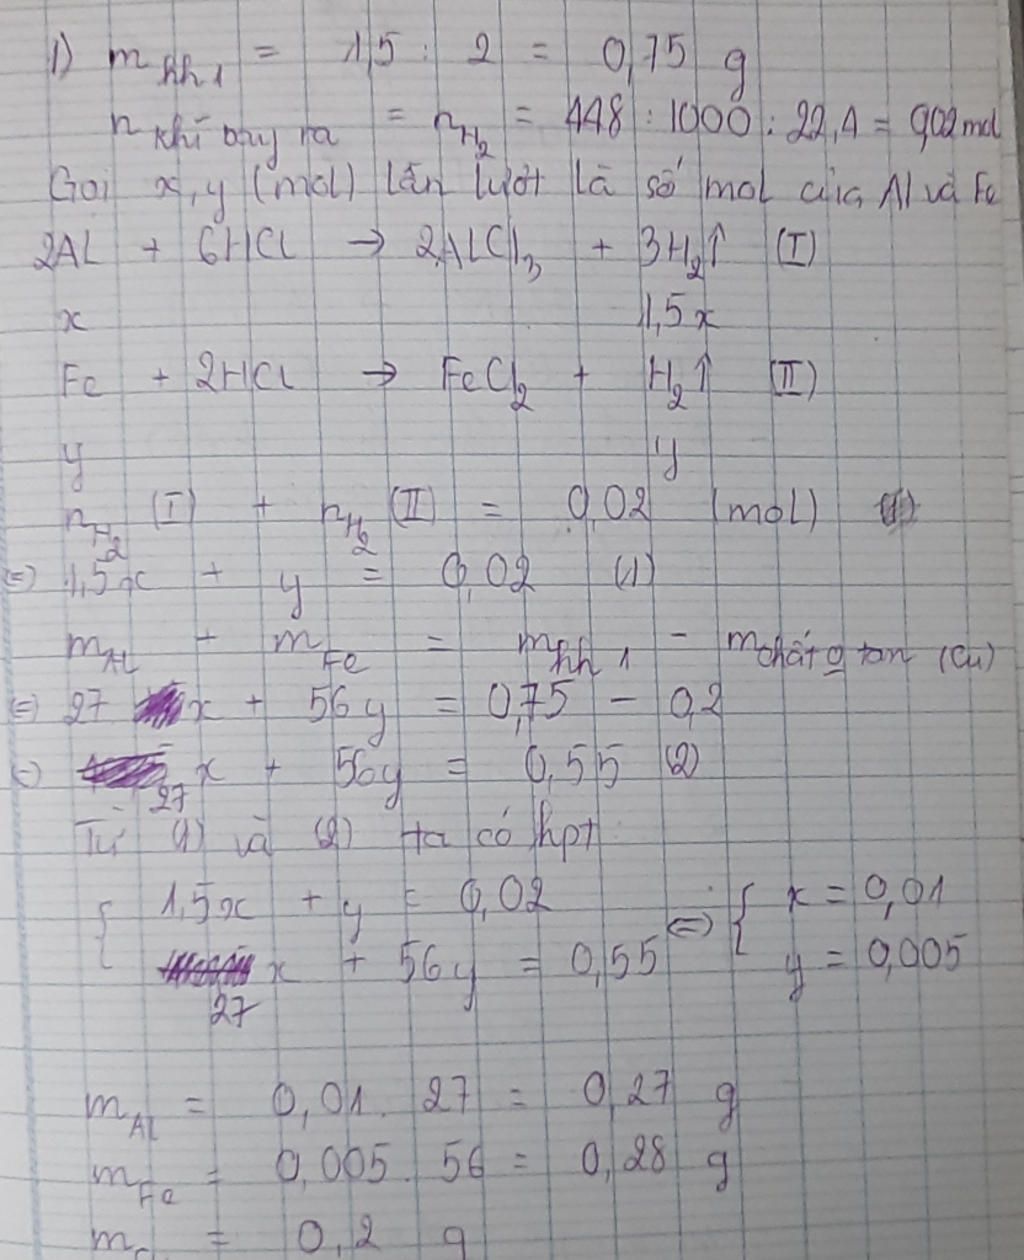 1) m hh1 = 1,5 : 2 = 0,75 g
n khí bay ra = nH2 = 448 : 1000 : 22,4 = 0,02 mol
Gọi x, y (mol) lần lượt là số mol của Al và Fe
2Al + 6HCl → 2AlCl3 + 3H2↑ (I)
x 1,5x
Fe + 2HCl → FeCl2 + H2↑ (II)
y y
nH2 (I) + nH2 (II) = 0,02 (mol)
(=) 1,5x + y = 0,02 (1)
mAl + mFe = m hh1 - m chất o tan (Cu)
(=) 27 x + 56y = 0,75 - 0,2
(=) 27 x + 56y = 0,55 (2)
Từ (1) và (2) ta có hpt:
{ 1,5x + y = 0,02 (=) { x = 0,01
27 x + 56y = 0,55 y = 0,005
mAl = 0,01 . 27 = 0,27 g
mFe = 0,005 . 56 = 0,28 g
m = 0,2 g